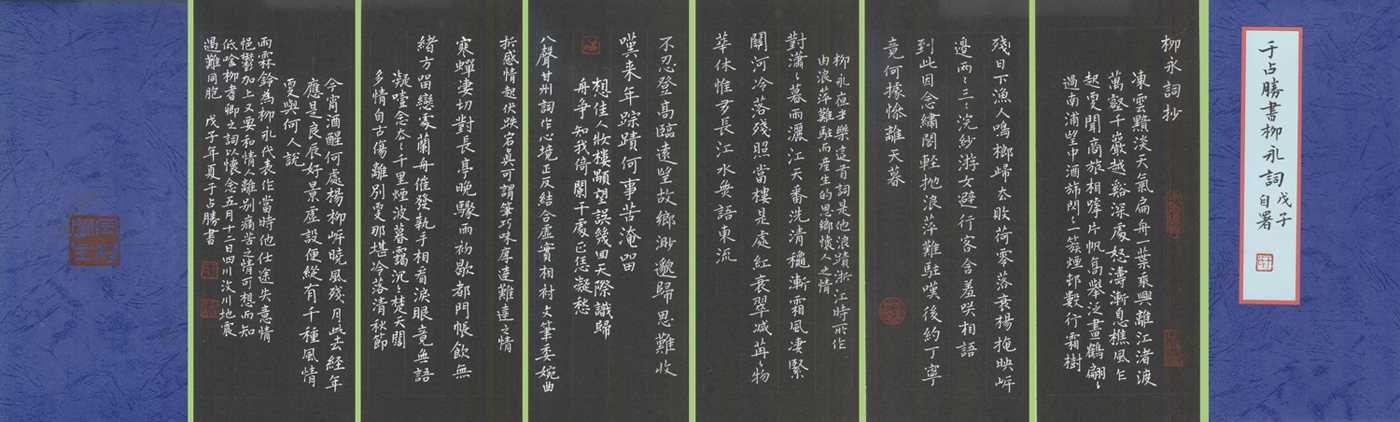 于占勝書柳永詞
戊子
自署
柳永詞抄
凍雲黯淡天氣扁舟一葉乘興離江渚渡
萬壑千巖越谿深處怒濤漸息樵風乍
起更聞商旅相嘑片帆高舉泛畫鶴翩〻
過南浦望中酒旆閃〻一簇煙邨數行霜樹
殘日下漁人鳴榔歸去敗荷零落衰楊掩映岸
邊兩〻三〻浣紗游女避行客含羞笑相語
到此因念繡閣輕抛浪萍難駐嘆後約丁寧
竟何據慘離天暮
柳永夜半樂這首詞是他浪蹟浙江時所作
由浪萍難駐而產生的思鄉懷人之情
對瀟〻暮雨灑江天番洗清秋漸霜風淒緊
關河冷落殘照當樓是處紅衰翠减苒〻物
華休惟有長江水無語東流
不忍登高臨遠望故鄉渺邈歸思難收
嘆来年踪蹟何事苦淹留
想佳人妝樓顒望誤幾回天際識歸
舟爭知我倚闌干處正恁凝愁
八聲甘州詞作心境正反結合虛實相衬文筆委婉曲
折感情起伏跌宕真可謂筆巧味厚達難達之情
寒蟬淒切對長亭晚驟雨初歇都門帳飲無
緒方留戀處蘭舟催發執手相看淚眼竟無語
凝噎念去〻千里煙波暮靄沉〻楚天闊
多情自古傷離別更那堪冷落清秋節
今宵酒醒何處楊柳岸曉風殘月此去經年
應是良辰好景虛設便縱有千種風情
更與何人說
雨霖鈴為柳永代表作當時他仕途失意情
悒鬱加上又要和情人離別痛苦之情可想而知
低唫柳耆卿之詞以懷念五月十二日四川汶川地震
遇難同胞 戊子年夏于占勝書